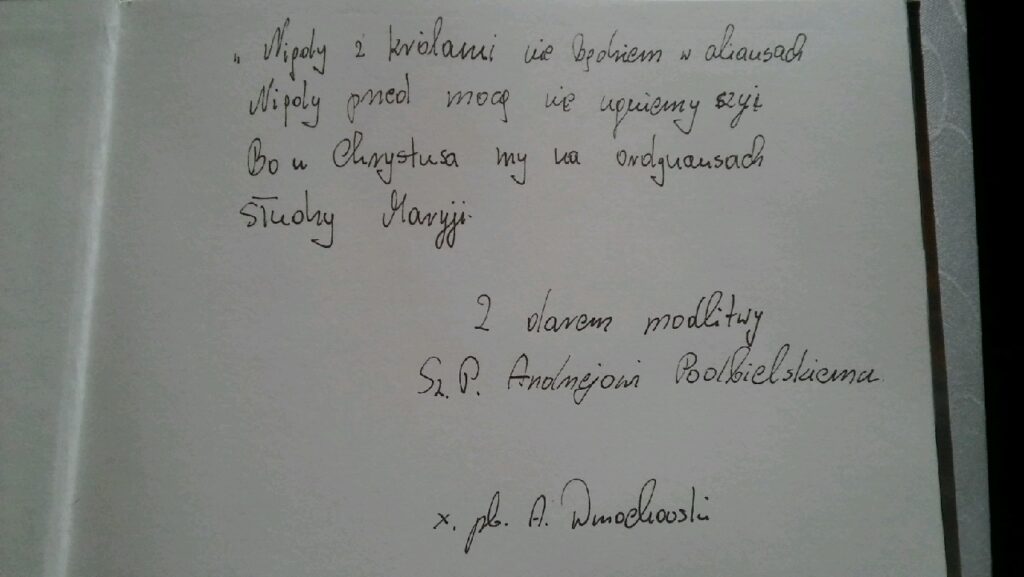 „Nigdy z królami nie będziem w aliansach
Nigdy przed mocą nie ugniemy szyi
Bo u Chrystusa my na ordynansach
Słudzy Maryji.
Z darem modlitwy
Sz. P. Andrzejowi Podbielskiemu
x. pb. A.